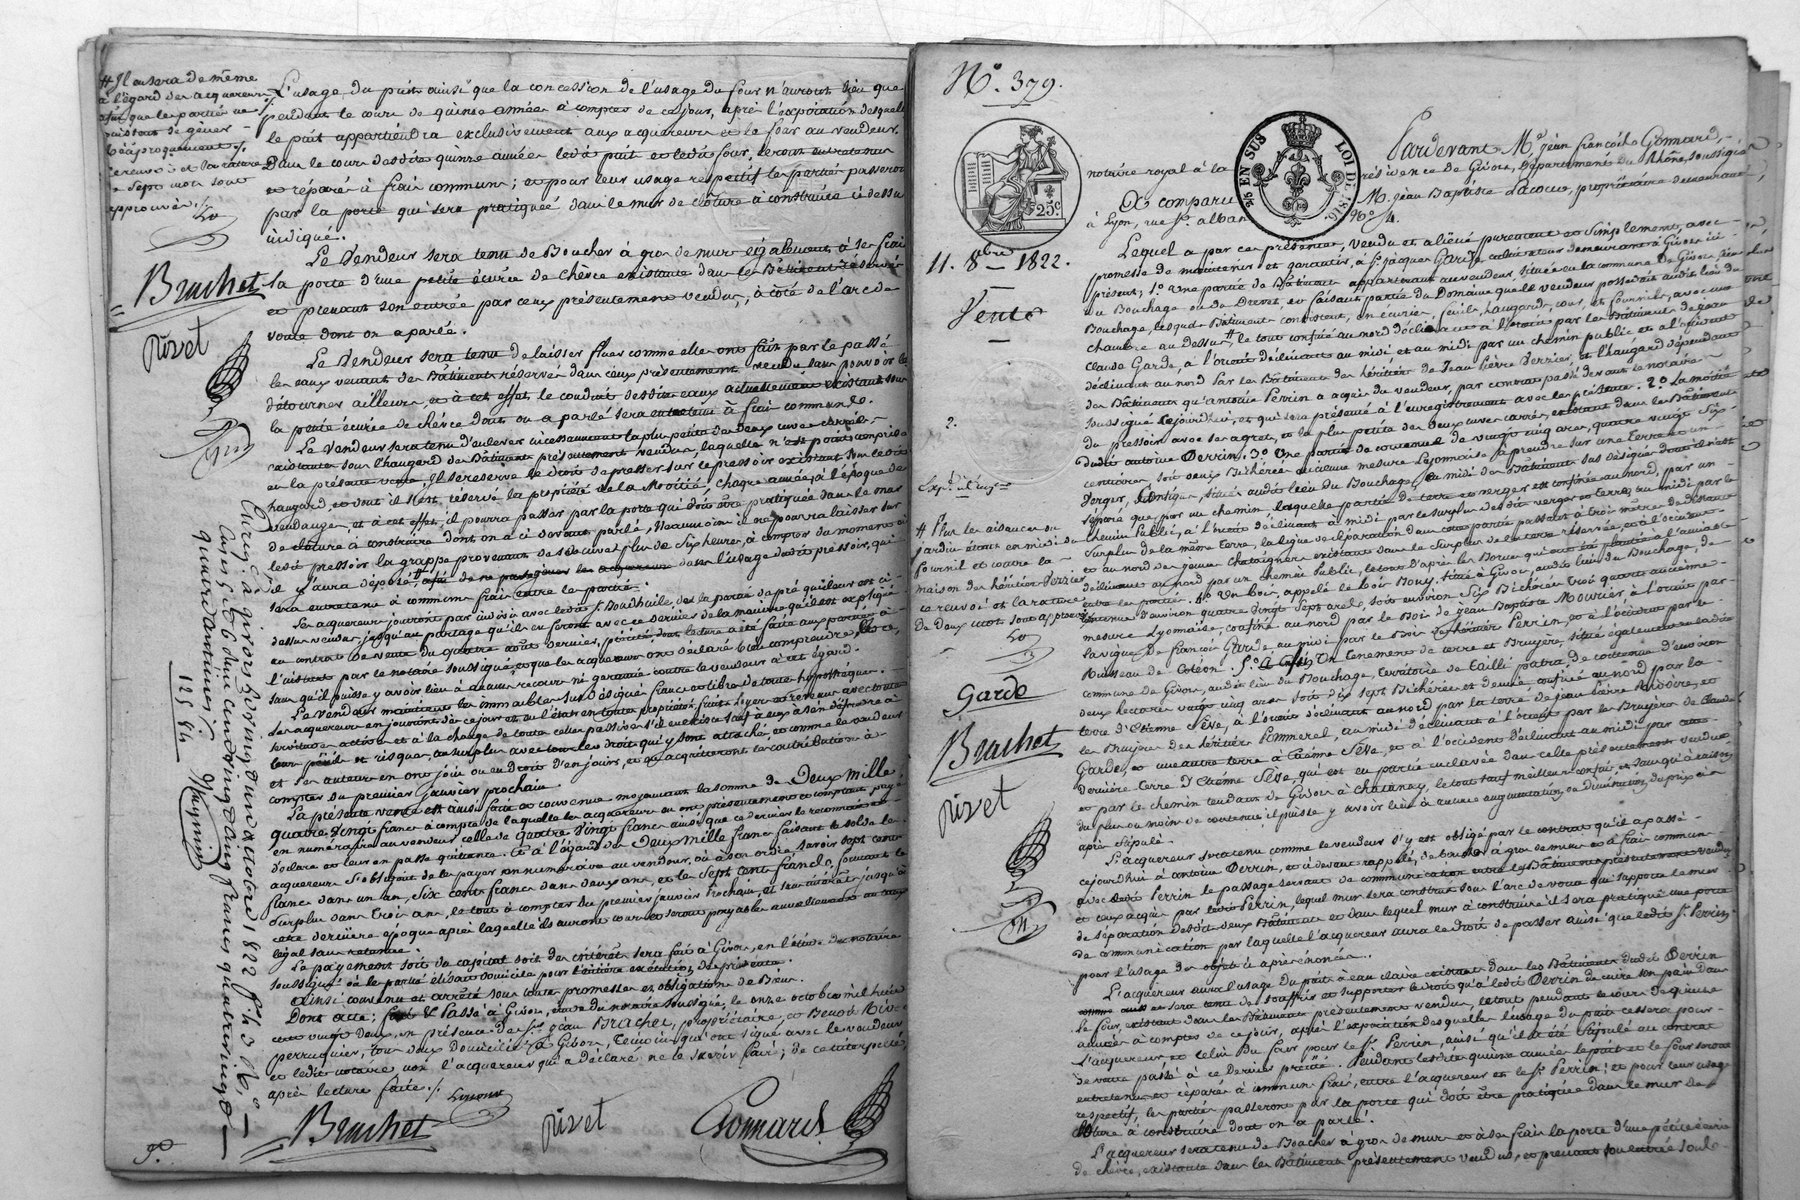 # Il en sera de même
à l'égard des acquereurs
afin que les parties ne
puissent se gêner
réciproquement ./.
approuvés ./.
Brachet
rivet
L'usage du puit ainsi que la concession de l'usage du four n'auront lieu que
pendant le cours de quinze années à compter de ce jour, après l'expiration desquelles
le puit appartiendra exclusivement aux acquereurs et le four au vendeur.
Dans le cours desdites quinze années ledit puit et ledit four seront entretenus
et réparés à frais communs; et pour leur usage respectif les parties passeront
par la porte qui sera pratiquée dans le mur de cloture à construire ci dessus
indiqué.
Le Vendeur sera tenu de Boucher à gros de murs également à ses frais
la porte d'une petite écurie de chèvre existante dans les Bâtiments réservés
et prenant son entrée par ceux présentement vendus, à côté de l'arc de
voute dont on a parlé.
Le Vendeur sera tenu de laisser fluer comme elles ont fait par le passé
les eaux venant des Bâtiments réservés dans ceux présentement vendus sans pouvoir les
détourner ailleurs et à cet effet, le conduit desdites eaux actuellement existant sous
la petite écurie de chèvre dont on a parlé sera entretenu à frais communs.
Le Vendeur sera tenu d'enlever incessamment la plus petite des deux cuves
existante sous l'hangard des Bâtiments présentement vendus, laquelle n'est point comprise
en la présente vente. Il se réserve le droit de presser sur le pressoir existant sous ledit
hangard, et dont il s'est réservé la propriété de la Moitié, chaque année, à l'époque des
vendanges, et à cet effet, il pourra passer par la porte qui doit être pratiquée dans le mur
de cloture à construire dont on a ci devant parlé, Néanmoins il ne pourra laisser sur
ledit pressoir la grappe provenant de ses cuves plus de Six heures, à compter du moment où
il l'aura déposée,
sera entretenu à communs frais entre les parties.
Les acquereurs jouiront par indivis avec ledit Sr
dessus vendu, jusqu'au partage qu'ils en feront avec ce dernier de la manière qu'il est expliqué
au contrat de vente du quatre août dernier, précité, dont lecture a été faite aux parties à
l'instant par le notaire soussigné et que les acquereurs ont déclaré bien comprendre,
sans qu'il puisse y avoir lieu à aucun recours ni garantie contre le vendeur à cet égard.
Le Vendeur maintient les immeubles sus désignés francs et libres de toute hypothèque.
compter du premier janvier prochain
La présente vente est ainsi faite et convenue moyennant la somme de Deux mille
quatre Vingt francs à compte de laquelle les acquereurs en ont présentement et comptant payé
en numéraire au vendeur, celle de Quatre Vingt francs ainsi que ce dernier le reconnait et
déclare et leur en passe quittance. Et à l'égard des Deux Mille francs faisant le solde les
acquereurs s'obligent de les payer en numéraire au vendeur, ou à son ordre, savoir sept cent
francs dans un an, Six cent francs dans deux ans, et les Sept cent francs formant le
surplus dans trois ans, le tout à compter du premier janvier prochain, et sans intérêts jusqu'à
cette dernière époque après laquelle ils auront cours et seront payables annuellement au taux
légal sans retenue.
Le payement soit du capital soit des intérêts sera fait à Givors, en l'étude du notaire
soussigné où les parties élisent domicile pour l'entière exécution des présentes.
Ainsi convenu et arrêté sous toutes promesses et obligations de Biens.
Dont acte; fait & Passé à Givors, étude du notaire soussigné, le onze octobre mil huit
cent vingt deux, en présence de Srs jean Brachet, propriétaire, et Benoit Rivet
perruquier, tous deux domiciliés à Givors, témoins qui ont signé avec le vendeur
et ledit notaire non l'acquereur qui a déclaré ne le savoir faire; de ce interpellé,
après lecture faite ./.
Brachet
rivet
Gonnard
Enreg.é à Givors le vingt un octobre 1822 f.o
quatre centimes ./.
125 84
N.o 379.
25.c
BIEN SUS
LOI DE 1816.
11. 8bre 1822.
Vente
2.
Exp.
# Plus les aisances ou
jardin étant en midi du
fournil et contre la
maison des héritiers Perrier
ce renvoi et la rature
de deux mots sont approuvés
Garde
Brachet
rivet
Pardevant M.e jean françois Gonnard,
notaire royal à la résidence de Givors, Département du Rhône, soussigné
A comparu M. jean Baptiste Lacour, propriétaire demeurant
à Lyon, rue St. alban N.o 4.
Lequel a par ces présentes, vendu et aliéné purement et simplement, avec
promesse de maintenir et garantir, à Sr. jacques Garde cultivateur demeurant à Givors ici
présent; 1.o Une partie de Bâtiments appartenant au vendeur, située en la commune de Givors, lieu
du Bouchage ou du Drevet, et faisant partie du Domaine que le vendeur possédait audit lieu du
Bouchage, lesquels Bâtiments consistent, en écurie, fenil, hangard, cour, et fournil, avec une
chambre au dessus, # le tout confiné au nord déclinant à l'orient par les Bâtiments de jean
Claude Garde, à l'orient déclinant au midi, et au midi par un chemin public et à l'occident
déclinant au nord par les Bâtiments des héritiers de Jean Pierre Perrier et l'hangard dépendant
des Bâtiments qu'antoine Perrin a acquis du vendeur, par contrat passé devant le notaire
soussigné cejourdhui, et qui sera présenté à l'enregistrement avec les présentes. 2.o La moitié
du pressoir avec ses agrets, et la plus petite des deux cuves carrées existant dans les Bâtiments
dudit antoine Perrin. 3.o Une partie de contenue de vingt cinq ares, quatre vingt six
centiares, soit deux Bicherées ancienne mesure Lyonnaise à prendre sur une terre et un
Verger, contigus, situés audit lieu du Bouchage, au midi des Bâtiments sus désignés dont il n'est
séparé que par un chemin, lesquelles parties de terre et verger est confinée au nord, par un
chemin Public, à l'orient déclinant à midi par le surplus desdits verger et terre, au midi par le
surplus de la même terre, la ligne de séparation dans cette partie passant à trois mètres de distance
et au nord des jeunes chataigners existants dans le surplus de la terre réservée, et à l'occident
déclinant au nord par un chemin Public, le tout d'après les Bornes qui ont été plantées à l'amiable
entre les parties. 4.o Un bois, appelé le bois Bouy, situé à Givors, audit lieu du Bouchage, de
contenue d'environ quatre vingt sept ares, soit environ Six Bicherées trois quarts ancienne
mesure Lyonnaise, confiné au nord par le Bois de jean Baptiste Mourier, à l'orient par
la vigne de françois Garde, au midi par le Bois héritiers Perrin, et à l'occident par le
Ruisseau de Cotéon. 5.o & enfin, Un tenement de terre et Bruyère, situé également en ladite
commune de Givors, audit lieu du Bouchage, territoire de tailli patra, de contenue d'environ
deux hectares vingt cinq ares, soit dix sept Bicherées et demie, confiné au nord par la
terre d'Etienne Sève, à l'orient déclinant au nord par la terre de jean Pierre
les Bruyères des héritiers Pommerel, au midi déclinant à l'orient par les Bruyères de Claude
Garde, et une autre terre à Etienne Sève, et à l'occident déclinant au midi par
dernière terre d'Etienne Sève, qui est en partie enclavée dans celle présentement vendue
et par le chemin tendant de Givors à Chassagny, le tout sauf meilleurs confins, et sans qu'à raison
du plus ou moins de contenue il puisse y avoir lieu à aucune augmentation, ou diminution du prix ci
après stipulé.
L'acquereur sera tenu comme le vendeur s'y est obligé par le contrat qu'il a passé
cejourdhui à antoine Perrin, et ci devant rappelé, de boucher à gros de murs et à frais communs
avec ledit Perrin le passage servant de communication entre les Bâtiments présentement vendus
et ceux acquis par ledit Perrin, lequel mur sera construit sous l'arc de voute qui supporte le mur
de séparation desdits deux Bâtiments et dans lequel mur à construire il sera pratiqué une porte
de communication par laquelle l'acquereur aura le droit de passer ainsi que ledit Sr. Perrin
pour l'usage des objets ci après énoncés.
L'acquereur aura l'usage du puit à eau claire existant dans les Bâtiments dudit Perrin
comme aussi il sera tenu de souffrir et supporter le droit qu'a ledit Perrin de cuire son pain dans
le four, existant dans les Bâtiments présentement vendus, le tout pendant le cours de quinze
années à compter de ce jour, après l'expiration desquelles l'usage du puit cessera pour
l'acquereur et celui du four pour le Sr. Perrin, ainsi qu'il a été stipulé au contrat
de vente passé à ce dernier précité. Pendant lesdites quinze années le puit et le four seront
entretenus et réparés à communs frais, entre l'acquereur et le Sr. Perrin; et pour leur usage
respectif, les parties passeront par la porte qui doit être pratiquée dans le mur de
cloture à construire dont on a parlé.
L'acquereur sera tenu de Boucher à gros de murs et à ses frais la porte d'une petite écurie
de chèvre, existante dans les Bâtiments présentement vendus, et prenant son entrée sous le